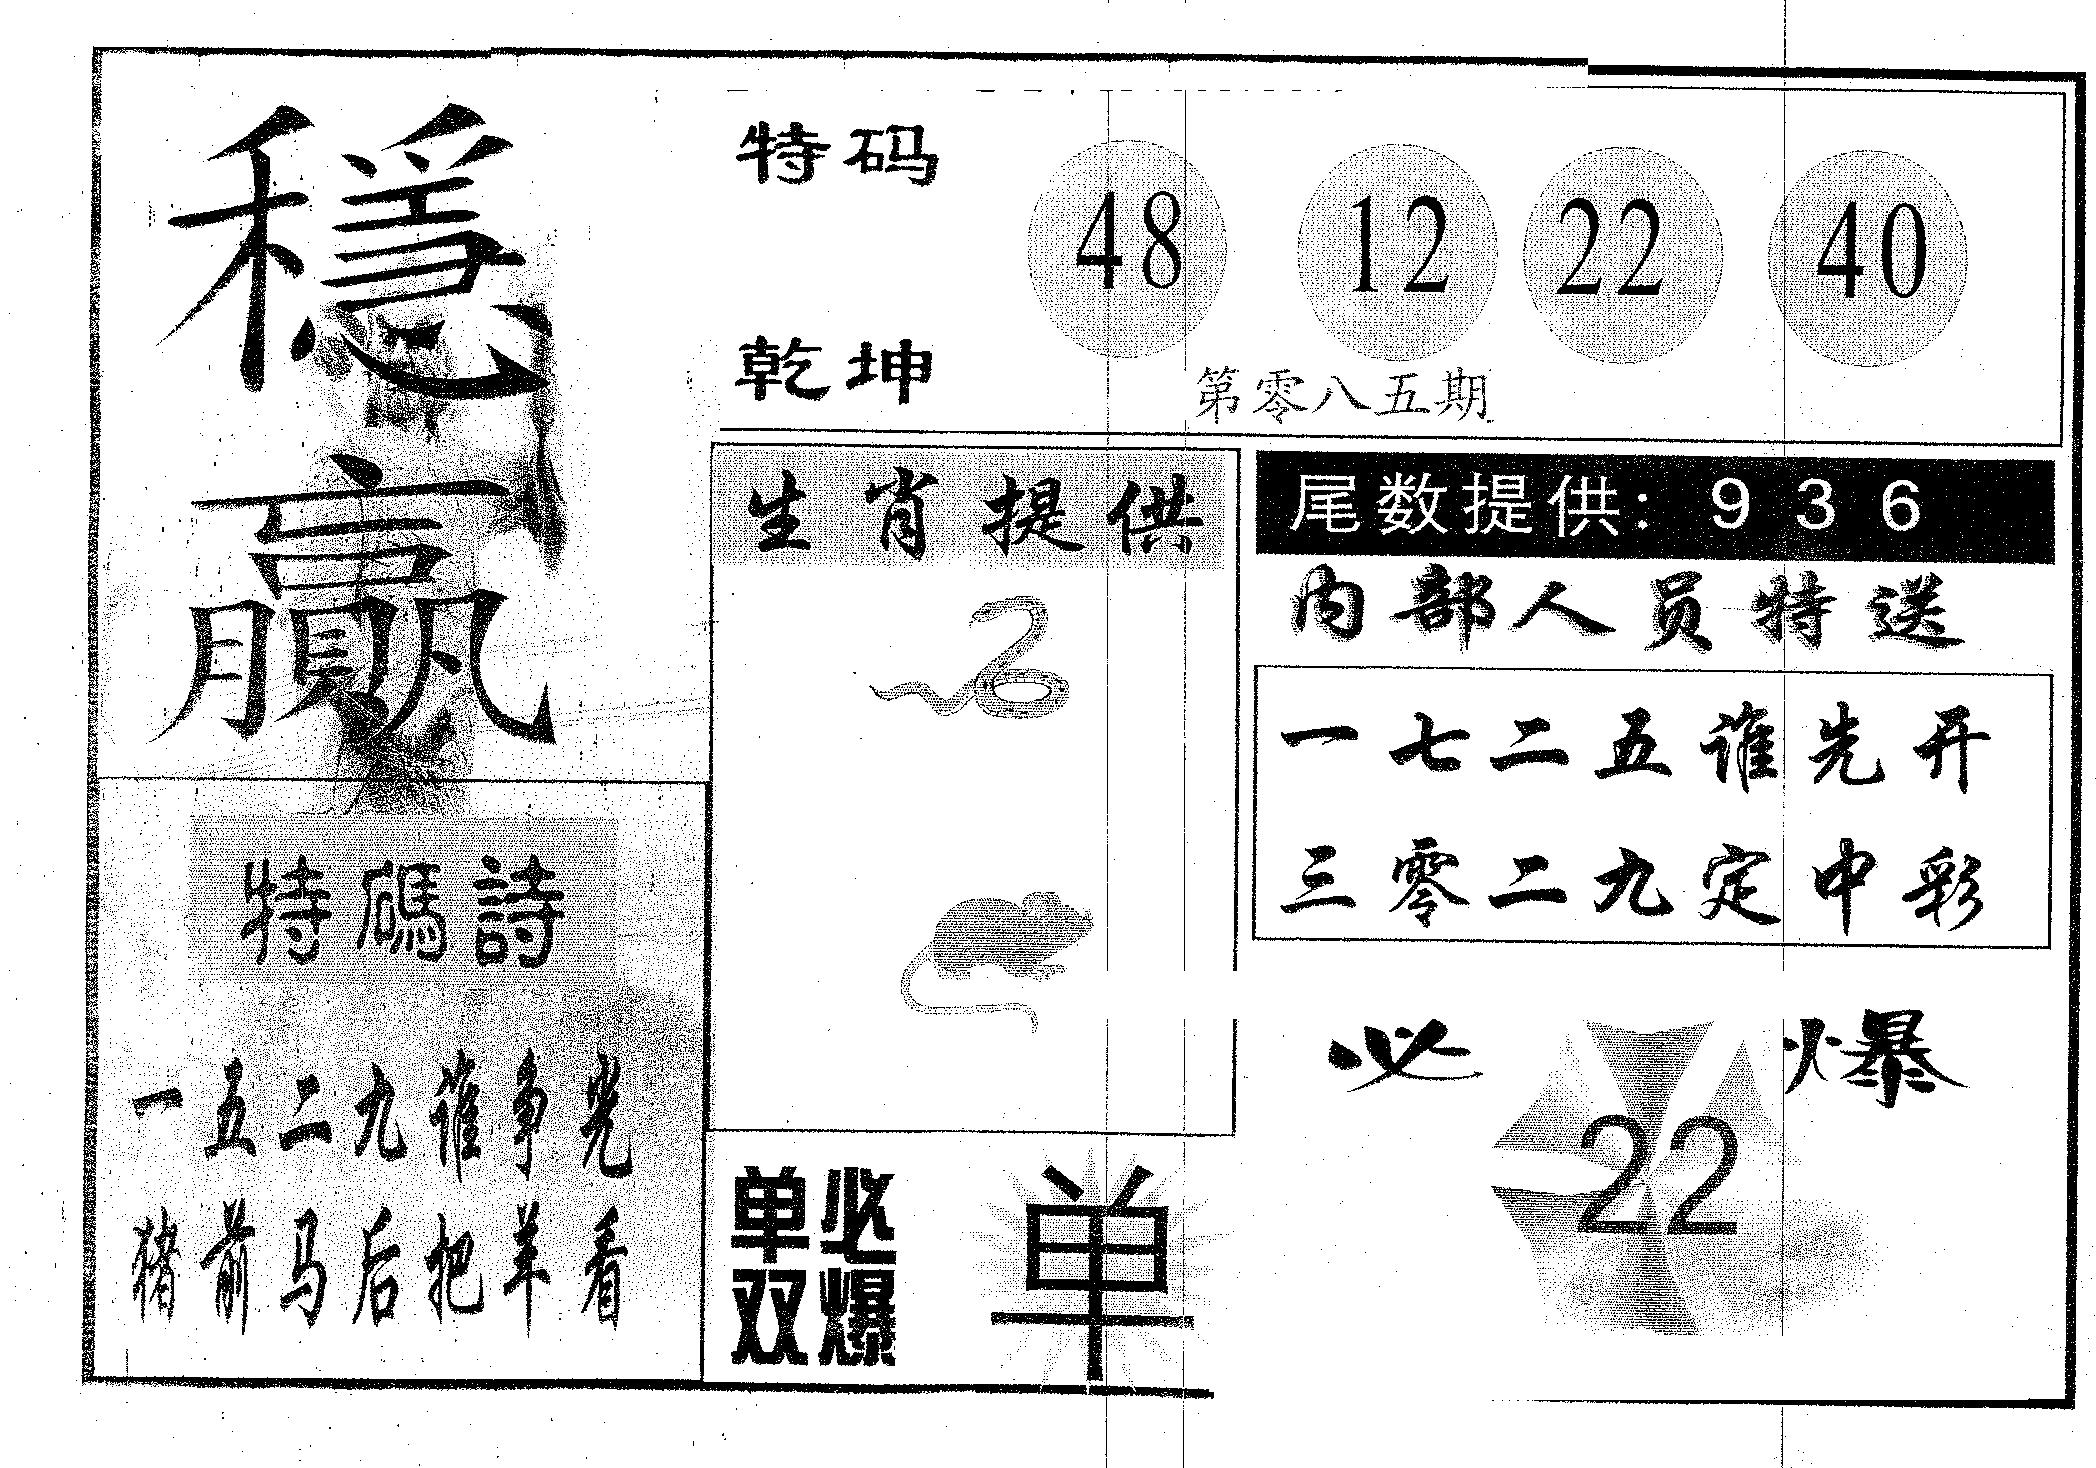 穩
贏
特码
乾坤
48 12 22 40
第零八五期
生肖提供
尾数提供：9 3 6
内部人员特送
一七二五谁先开
三零二九定中彩
必爆
22
特碼詩
一五二九谁争光
猪前马后把羊看
单双
必爆
单